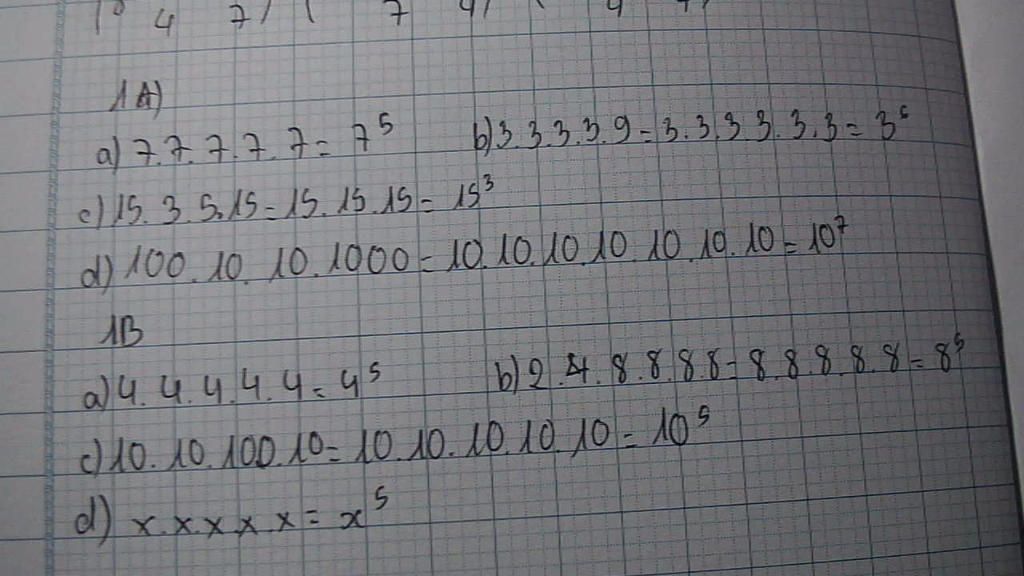 4 7) ( 7 4) ( 4 7)
1A)
a) 7.7.7.7.7 = 7⁵ b) 3.3.3.3.9 = 3.3.3.3.3.3 = 3⁶
c) 15.3.5.15 = 15.15.15 = 15³
d) 100.10.10.1000 = 10.10.10.10.10.10.10 = 10⁷
1B
a) 4.4.4.4.4 = 4⁵ b) 2.4.8.8.8.8 = 8.8.8.8.8 = 8⁵
c) 10.10.100.10 = 10.10.10.10.10 = 10⁵
d) x.x.x.x.x = x⁵